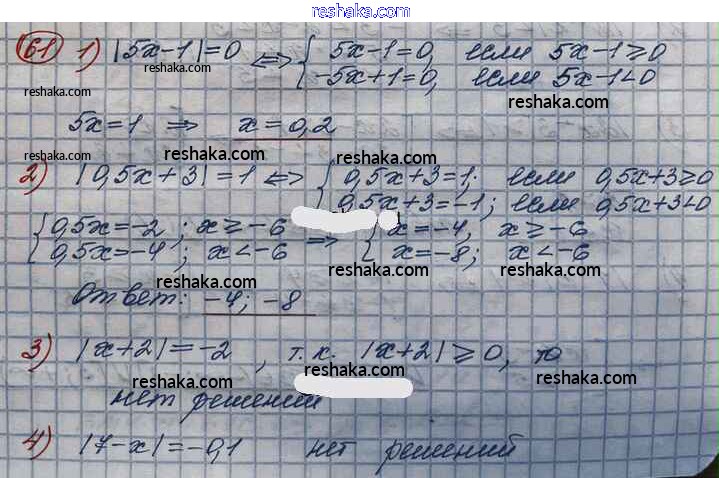 reshaka.com
61 1) |5x-1|=0 <=> { 5x-1=0, если 5x-1≥0
-5x+1=0, если 5x-1<0
reshaka.com reshaka.com
5x=1 => x=0,2
reshaka.com reshaka.com reshaka.com
2) |0,5x+3|=1 <=> { 0,5x+3=1; если 0,5x+3≥0
0,5x+3=-1; если 0,5x+3<0
{ 0,5x=-2 ; x≥-6 => { x=-4, x≥-6
0,5x=-4; x<-6 x=-8; x<-6
reshaka.com reshaka.com reshaka.com
Ответ: -4; -8
3) |x+2|=-2 , т.к. |x+2|≥0, то
reshaka.com reshaka.com reshaka.com
нет решений
4) |7-x|=-0,1 нет решений
reshaka.com reshaka.com reshaka.com